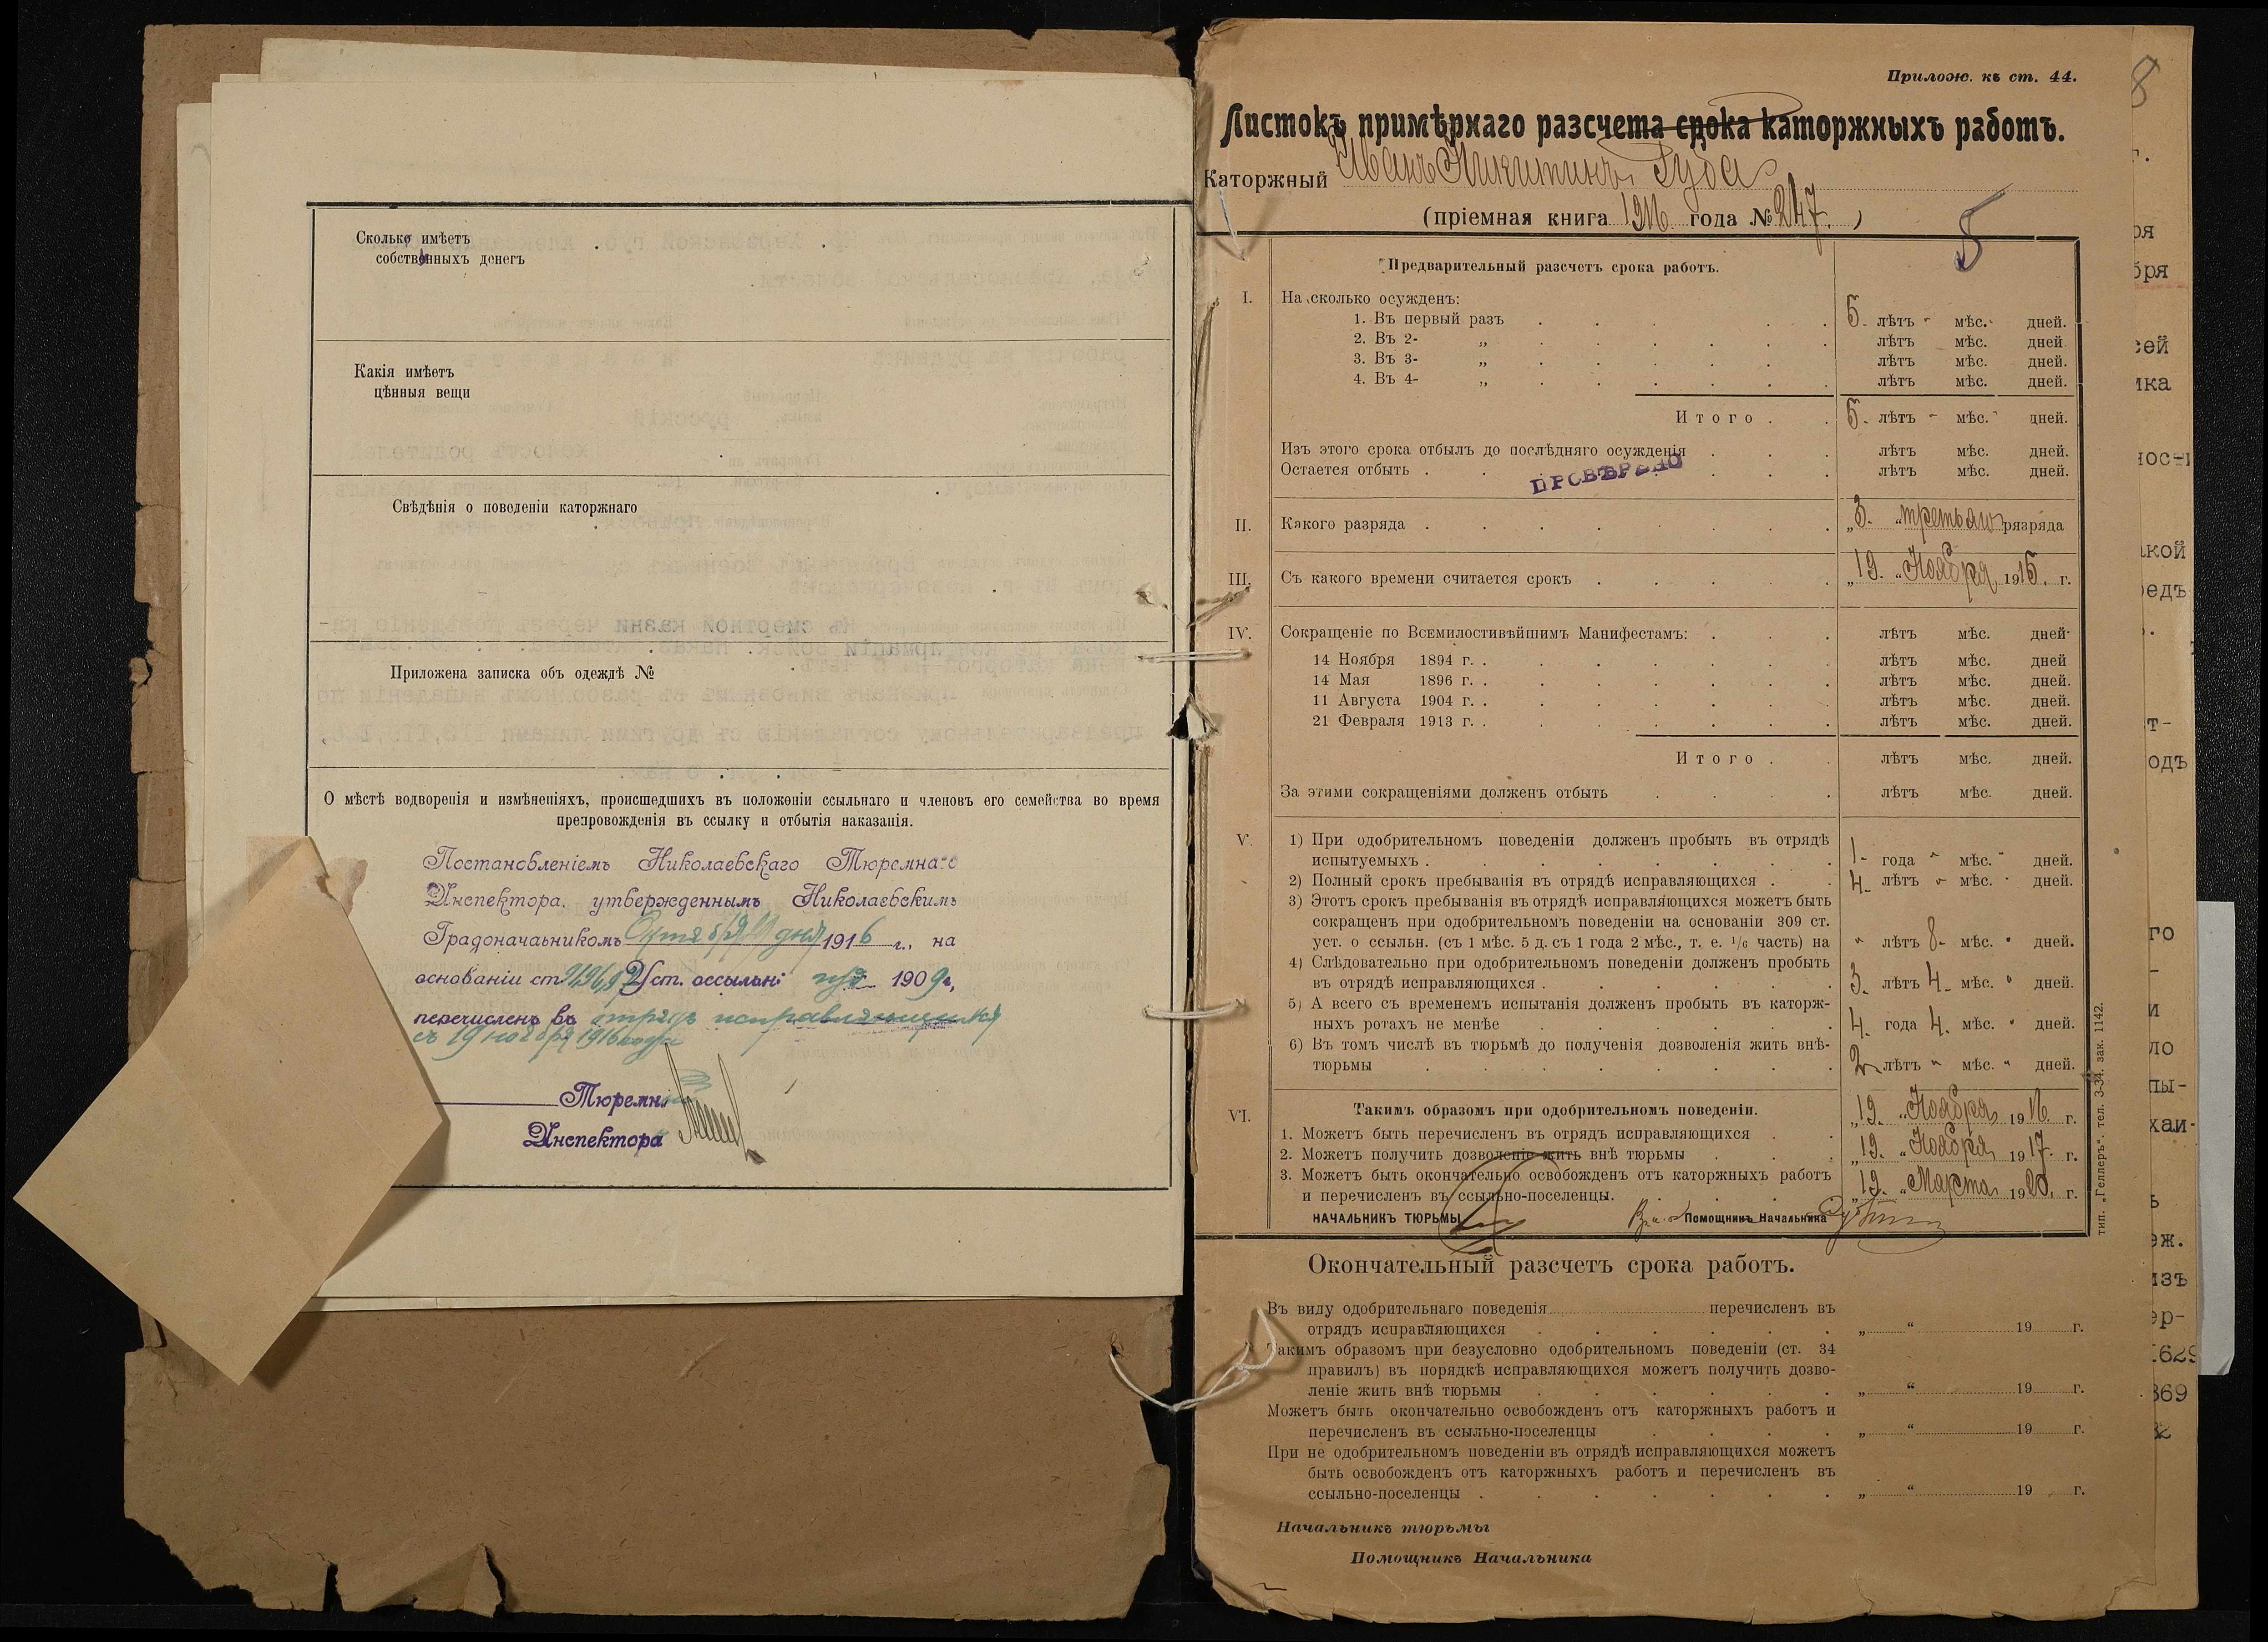 Сколько имѣетъ
собственныхъ денегъ
Какія имѣетъ
цѣнныя вещи
Свѣдѣнія о поведеніи каторжнаго
Приложена записка объ одеждѣ №
О мѣстѣ водворенія и измѣненіяхъ, происшедшихъ въ положеніи ссыльнаго и членовъ его семейства во время
препровожденія въ ссылку и отбытія наказанія.
Постановленіемъ Николаевскаго Тюремнаго
Инспектора, утвержденнымъ Николаевскимъ
Градоначаьникомъ 1916 г., на
основаніи ст Уст. оссыльн: 1909г,
перечисленъ въ отрядъ исправляющихся
съ 19 ноября 1916 года
Тюремн
Инспектора
8
Прилож. къ ст. 44.
Листокъ примѣрнаго разсчета срока каторжныхъ работъ.
Каторжный Иванъ Никитинъ Губа
(пріемная книга 1916 года № 247.)
5
Предварительный разсчетъ срока работъ.
I. На сколько осужденъ:
1. Въ первый разъ . . . . . 5. лѣтъ - мѣс. - дней.
2. Въ 2- „ . . . . . . лѣтъ мѣс. дней.
3. Въ 3- „ . . . . . . лѣтъ мѣс. дней.
4. Въ 4- „ . . . . . . лѣтъ мѣс. дней.
Итого . . 5. лѣтъ - мѣс. - дней.
Изъ этого срока отбылъ до послѣдняго осужденія . . . лѣтъ мѣс. дней.
Остается отбыть . . . . лѣтъ мѣс. дней.
ПРОВѢРЕНО
II. Какого разряда . . . . . . . . „3. “ третьяго разряда
III. Съ какого времени считается срокъ . . . . . „19. “ Ноября 1915. г.
IV. Сокращеніе по Всемилостивѣйшимъ Манифестамъ: . . . лѣтъ мѣс. дней.
14 Ноября 1894 г. . . . . . . . лѣтъ мѣс. дней
14 Мая 1896 г. . . . . . . . лѣтъ мѣс. дней.
11 Августа 1904 г. . . . . . . . лѣтъ мѣс. дней.
21 Февраля 1913 г. . . . . . . . лѣтъ мѣс. дней.
Итого . . лѣтъ мѣс. дней.
За этими сокращеніями долженъ отбыть . . . . лѣтъ мѣс. дней.
V. 1) При одобрительномъ поведеніи долженъ пробыть въ отрядѣ
испытуемыхъ . . . . . . . . 1- года - мѣс. - дней.
2) Полный срокъ пребыванія въ отрядѣ исправляющихся . . 4. лѣтъ - мѣс. - дней.
3) Этотъ срокъ пребыванія въ отрядѣ исправляющихся можетъ быть
сокращенъ при одобрительномъ поведеніи на основаніи 309 ст.
уст. о ссыльн. (съ 1 мѣс. 5 д. съ 1 года 2 мѣс., т. е. 1/6 часть) на " лѣтъ 8- мѣс. " дней.
4) Слѣдовательно при одобрительномъ поведеніи долженъ пробыть
въ отрядѣ исправляющихся . . . . . . 3. лѣтъ 4. мѣс. " дней.
5) А всего съ временемъ испытанія долженъ пробыть въ каторж-
ныхъ ротахъ не менѣе . . . . . . 4. года 4. мѣс. " дней.
6) Въ томъ числѣ въ тюрьмѣ до полученія дозволенія жить внѣ-
тюрьмы . . . . . . . . 2 лѣтъ " мѣс. " дней.
VI. Такимъ образомъ при одобрительномъ поведеніи.
1. Можетъ быть перечисленъ въ отрядъ исправляющихся . . „19. “ Ноября 1916. г.
2. Можетъ получить дозволеніе жить внѣ тюрьмы . . . „19. “ Ноября 1917. г.
3. Можетъ быть окончательно освобожденъ отъ каторжныхъ работъ
и перечисленъ въ ссыльно-поселенцы. . . . . „19. “ Марта 1920. г.
НАЧАЛЬНИКЪ ТЮРЬМЫ Помощникъ Начальника
тип. „Геллеръ“. тел. 3-34. зак. 1142.
Окончательный разсчетъ срока работъ.
Въ виду одобрительнаго поведенія перечисленъ въ
отрядъ исправляющихся . . . . . . „ “ 19 г.
Такимъ образомъ при безусловно одобрительномъ поведеніи (ст. 34
правилъ) въ порядкѣ исправляющихся можетъ получить дозво-
леніе жить внѣ тюрьмы . . . . . . „ “ 19 г.
Можетъ быть окончательно освобожденъ отъ каторжныхъ работъ и
перечисленъ въ ссыльно-поселенцы . . . . „ “ 19 г.
При не одобрительномъ поведеніи въ отрядѣ исправляющихся можетъ
быть освобожденъ отъ каторжныхъ работъ и перечисленъ въ
ссыльно-поселенцы . . . . . . . „ “ 19 г.
Начальникъ тюрьмы
Помощникъ Начальника